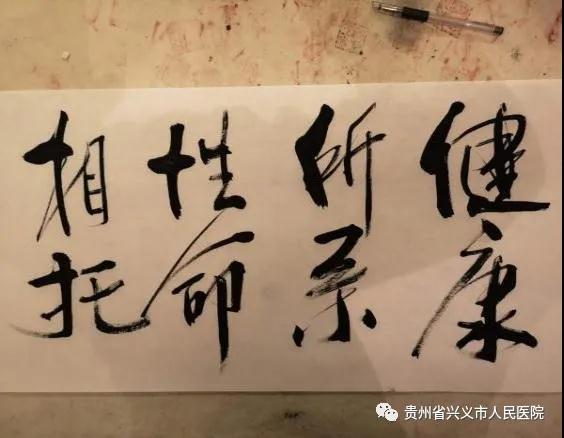 健康
所系
性命
相托
贵州省兴义市人民医院